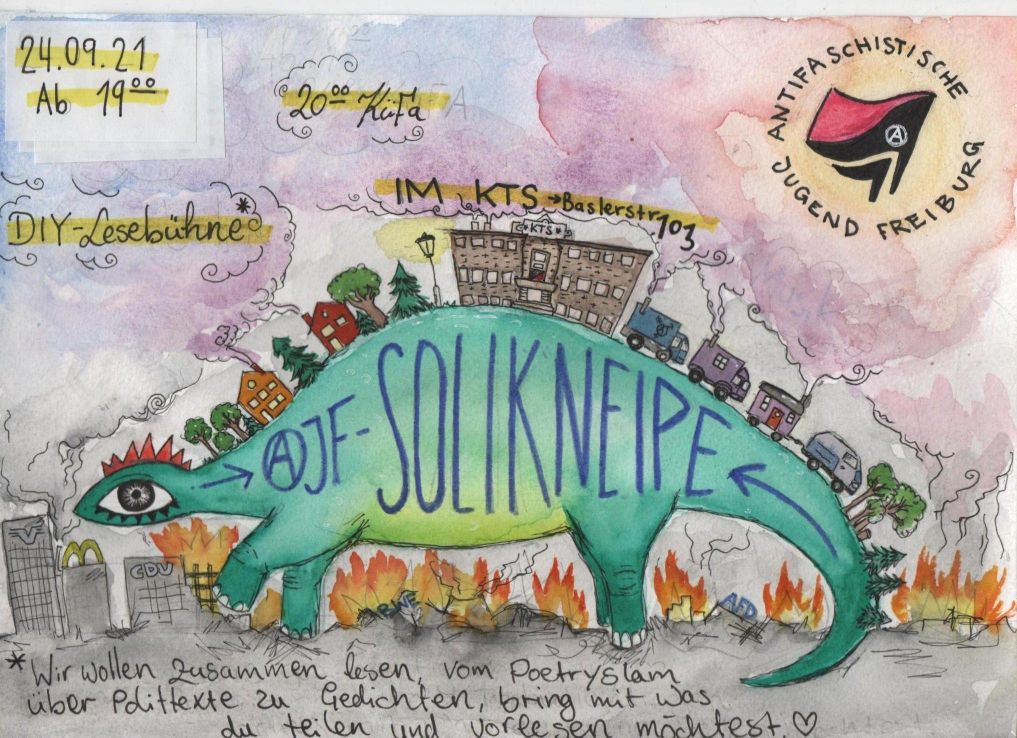 24.09.21
Ab 19⁰⁰
20⁰⁰ Küfa
ANTIFASCHISTISCHE
JUGEND FREIBURG
A
DIY-Lesebühne*
IM KTS → Baslerstr 103
KTS
→ AJF-SOLIKNEIPE ←
CDU
RWE
AFD
* Wir wollen zusammen lesen, vom Poetryslam
über Polittexte zu Gedichten, bring mit was
du teilen und vorlesen möchtest. ♡